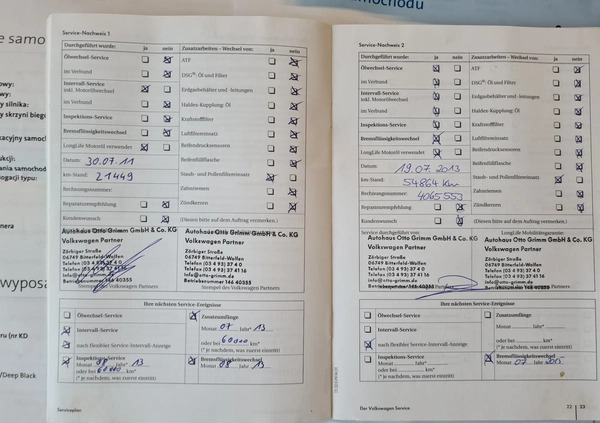 e samo
samochodu
owy:
wy:
y silnika:
y skrzyni biegów
kacyjny samoch
ukcji:
ania samochodu
ogacji typu:
nera
wyposa
ru (nr KD
/Deep Black
Service-Nachweis 1
Durchgeführt wurde: ja nein Zusatzarbeiten - Wechsel von: ja nein
Ölwechsel-Service ATF
im Verbund DSG®-Öl und Filter
Intervall-Service
inkl. Motorölwechsel Erdgasbehälter und -leitungen
im Verbund Haldex-Kupplung: Öl
Inspektions-Service Kraftstofffilter
Bremsflüssigkeitswechsel Luftfiltereinsatz
LongLife Motoröl verwendet Reifendruckssoren
Datum: 30.07.11 Reifenfüllflasche
km-Stand: 21449 Staub- und Pollenfiltereinsatz
Rechnungsnummer: Zahnriemen
Reparaturempfehlung Zündkerzen
Kundenwunsch (Diesen bitte auf dem Auftrag vermerken.)
Autohaus Otto Grimm GmbH & Co. KG Autohaus Otto Grimm GmbH & Co. KG
Volkswagen Partner Volkswagen Partner
Zörbiger Straße Zörbiger Straße
06749 Bitterfeld-Wolfen 06749 Bitterfeld-Wolfen
Telefon (03 4 93) 37 4 0 Telefon (03 4 93) 37 41 0
Telefax (03 4 93) 37 41 16
info@otto-grimm.de info@otto-grimm.de
Betriebsnummer 146 40355 Betriebsnummer 146 40355
Stempel des Volkswagen Partners
Ihre nächsten Service-Ereignisse
Ölwechsel-Service Zusatzumfänge
Intervall-Service Monat 07 Jahr* 13
nach flexibler Service-Intervall-Anzeige oder bei 60000 km*
(* je nachdem, was zuerst eintritt)
Inspektions-Service Bremsflüssigkeitswechsel
Monat 08 Jahr* 13 Monat 08 Jahr 13
oder bei 60000 km*
(* je nachdem, was zuerst eintritt)
Serviceplan
Service-Nachweis 2
Durchgeführt wurde: ja nein Zusatzarbeiten - Wechsel von: ja nein
Ölwechsel-Service ATF
im Verbund DSG®-Öl und Filter
Intervall-Service
inkl. Motorölwechsel Erdgasbehälter und -leitungen
im Verbund Haldex-Kupplung: Öl
Inspektions-Service Kraftstofffilter
Bremsflüssigkeitswechsel Luftfiltereinsatz
LongLife Motoröl verwendet Reifendrucksensoren
Datum: 19.07.2013 Reifenfüllflasche
km-Stand: 54864 Km Staub- und Pollenfiltereinsatz
Rechnungsnummer: 4065553 Zahnriemen
Reparaturempfehlung Zündkerzen
Kundenwunsch (Diesen bitte auf dem Auftrag vermerken.)
Service durchgeführt von: LongLife Mobilitätsgarantie:
Autohaus Otto Grimm GmbH & Co. KG Autohaus Otto Grimm GmbH & Co. KG
Volkswagen Partner Volkswagen Partner
Zörbiger Straße Zörbiger Straße
06749 Bitterfeld-Wolfen 06749 Bitterfeld-Wolfen
Telefon (03 4 93) 37 41 0 Telefon (03 4 93) 37 41 0
Telefax (03 4 93) 37 41 16 Telefax (03 4 93) 37 41 16
info@otto-grimm.de info@otto-grimm.de
Betriebsnummer 146 40355
Ihre nächsten Service-Ereignisse
Ölwechsel-Service Zusatzumfänge
Intervall-Service Monat Jahr*
nach flexibler Service-Intervall-Anzeige oder bei km*
(* je nachdem, was zuerst eintritt)
Inspektions-Service Bremsflüssigkeitswechsel
Monat Jahr* Monat 07 Jahr 2015
oder bei km*
(* je nachdem, was zuerst eintritt)
Der Volkswagen Service 22 23